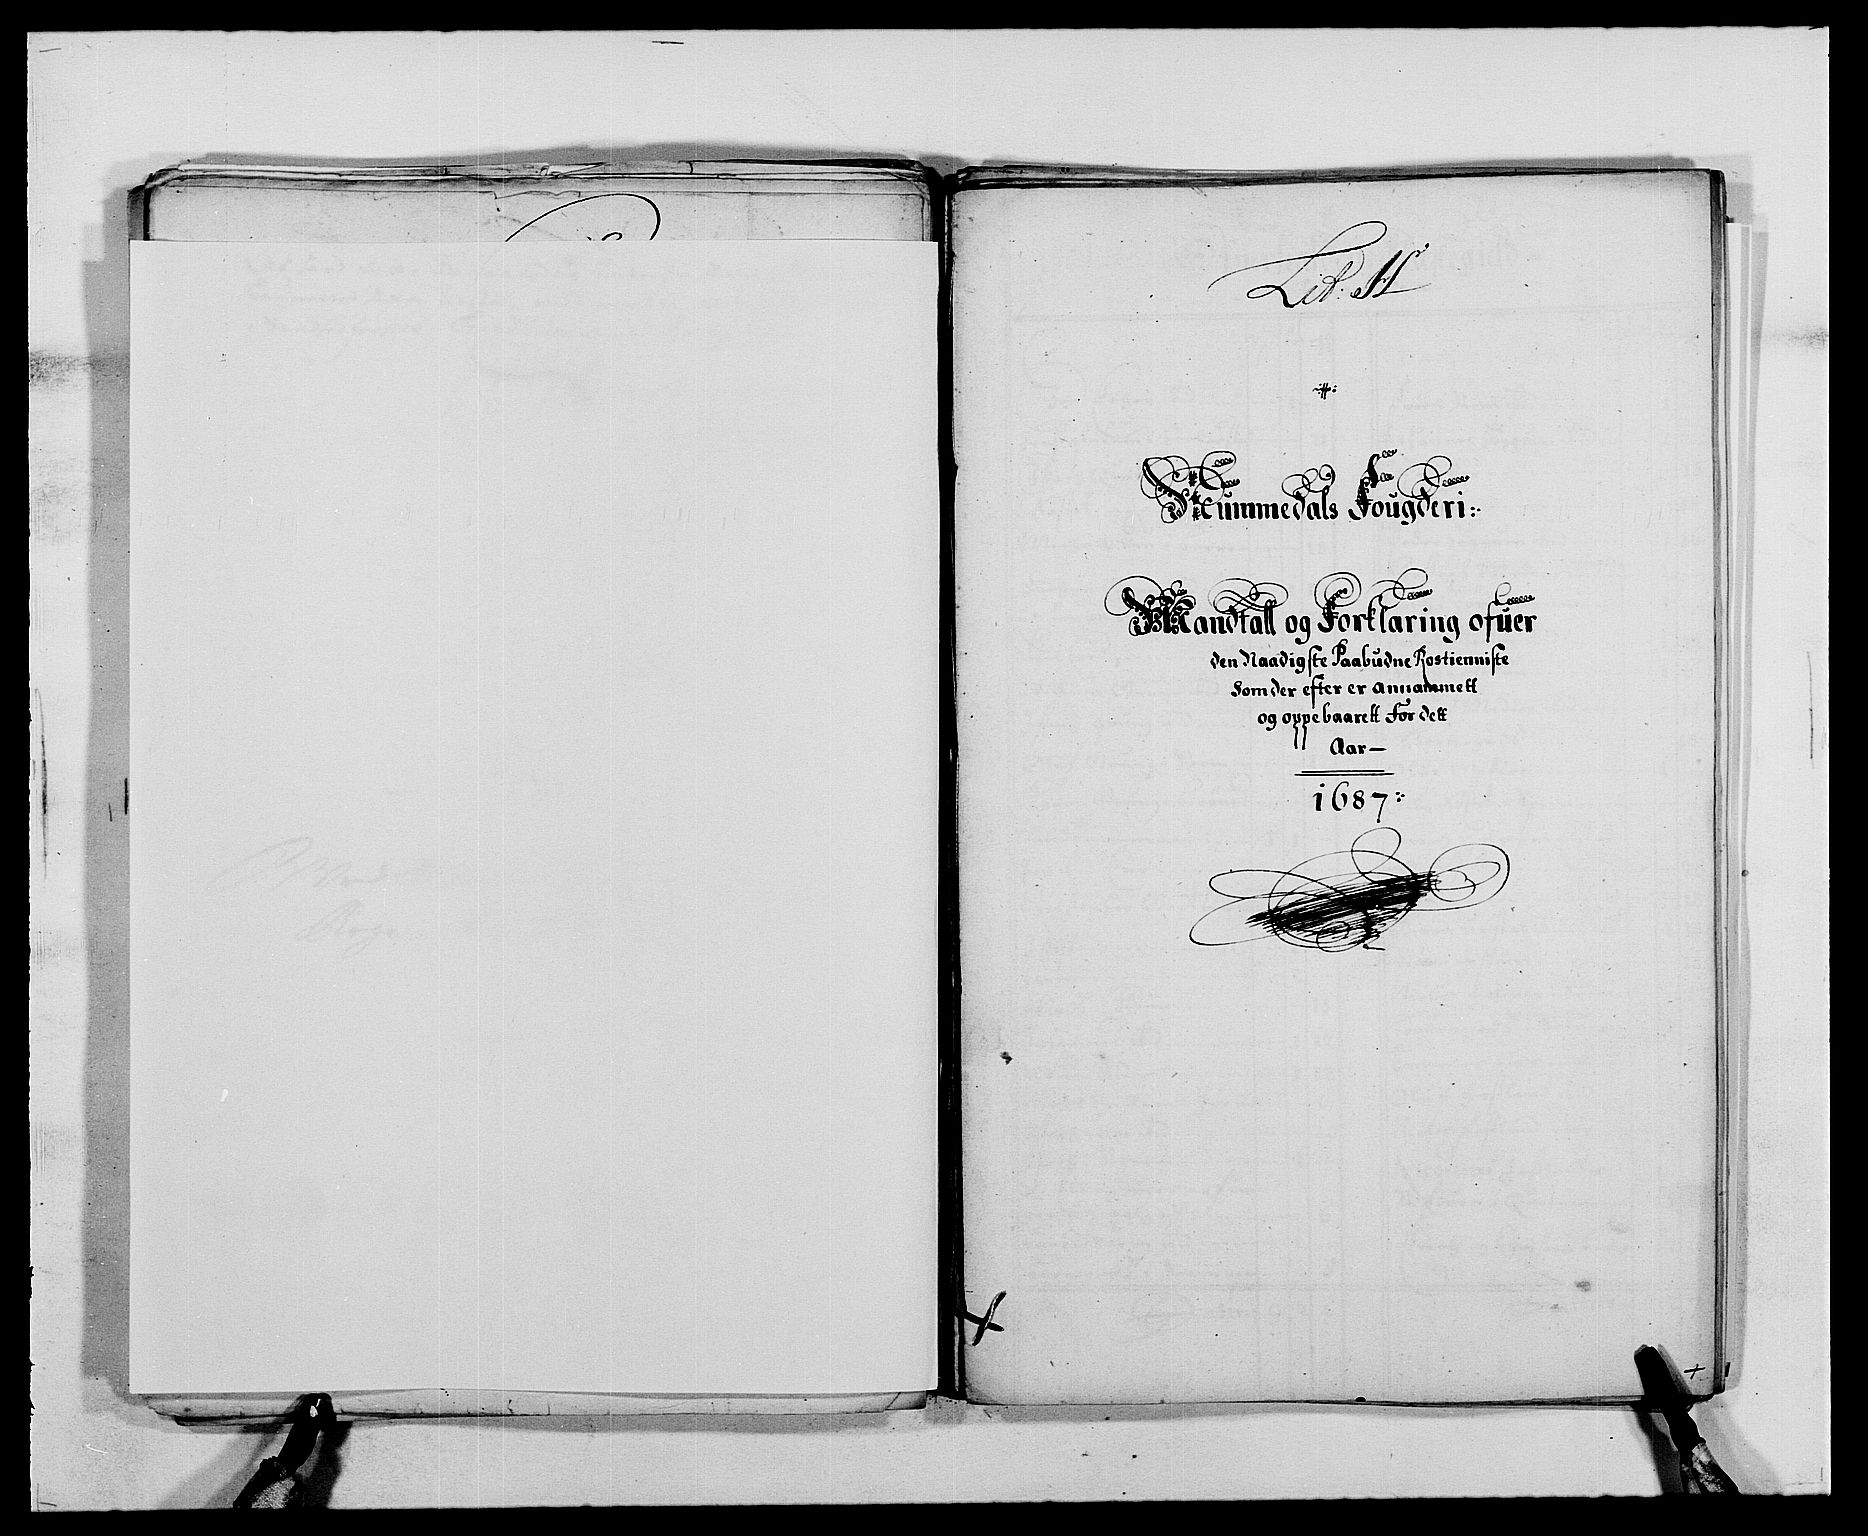 Lit: H
Nummedals Fougderi:
Mandtall og Forklaring ofuer
den Naadigste Paabudne Rostienniste
som der efter er annammett
og oppebaarett for dett
Aar—
1687: